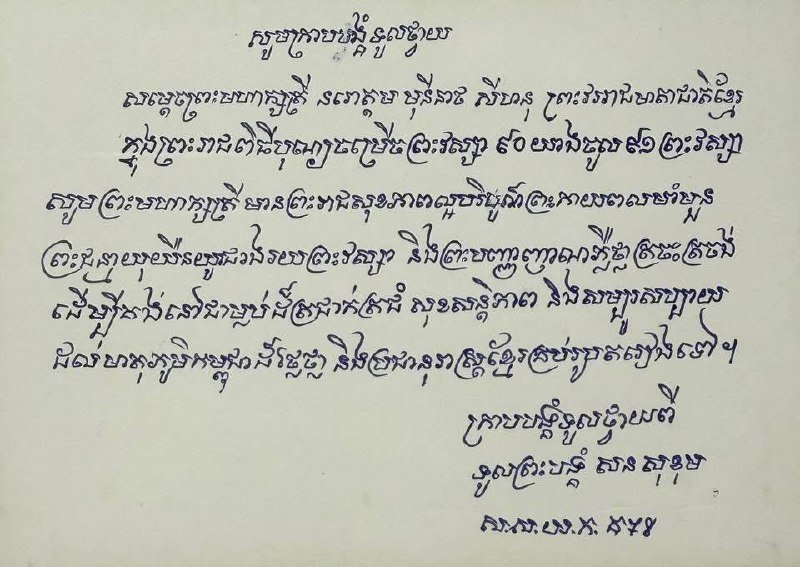 សូមក្រាបបង្គំទូលថ្វាយ
សម្តេចព្រះមហាក្សត្រី នរោត្តម មុនីនាថ សីហនុ ព្រះវររាជមាតាជាតិខ្មែរ
ក្នុងព្រះរាជពិធីបុណ្យចម្រើនព្រះវស្សា ៩០ យាងចូល ៩១ ព្រះវស្សា
សូមព្រះមហាក្សត្រី មានព្រះរាជសុខភាពល្អបរិបូណ៌ ព្រះកាយពលមាំមួន
ព្រះជន្មាយុយឺនយូរជាងរយព្រះវស្សា និងព្រះបញ្ញាញាណភ្លឺថ្លា ត្រចះត្រចង់
ដើម្បីគង់នៅជាម្លប់ដ៏ត្រជាក់ត្រជុំ សុខសន្តិភាព និងសម្បូរសប្បាយ
ដល់មាតុភូមិកម្ពុជាដ៏ថ្លៃថ្លា និងប្រជានុរាស្ត្រខ្មែរគ្រប់រូបតរៀងទៅ។
ក្រាបបង្គំទូលថ្វាយពី
ទូលព្រះបង្គំ សន សុខុម
ស.ស.យ.ក.